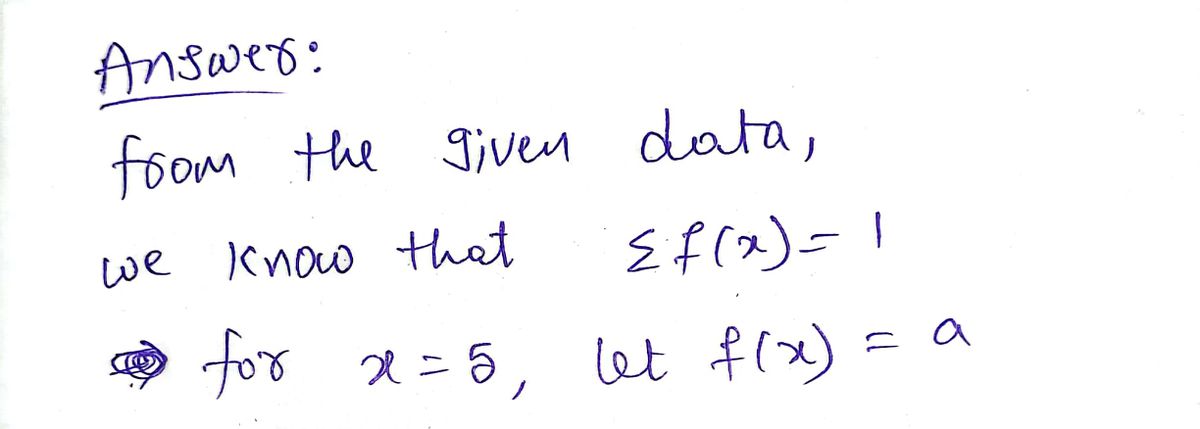 Answer:
from the given data,
we know that Σf(x) = 1
for x = 5, let f(x) = a